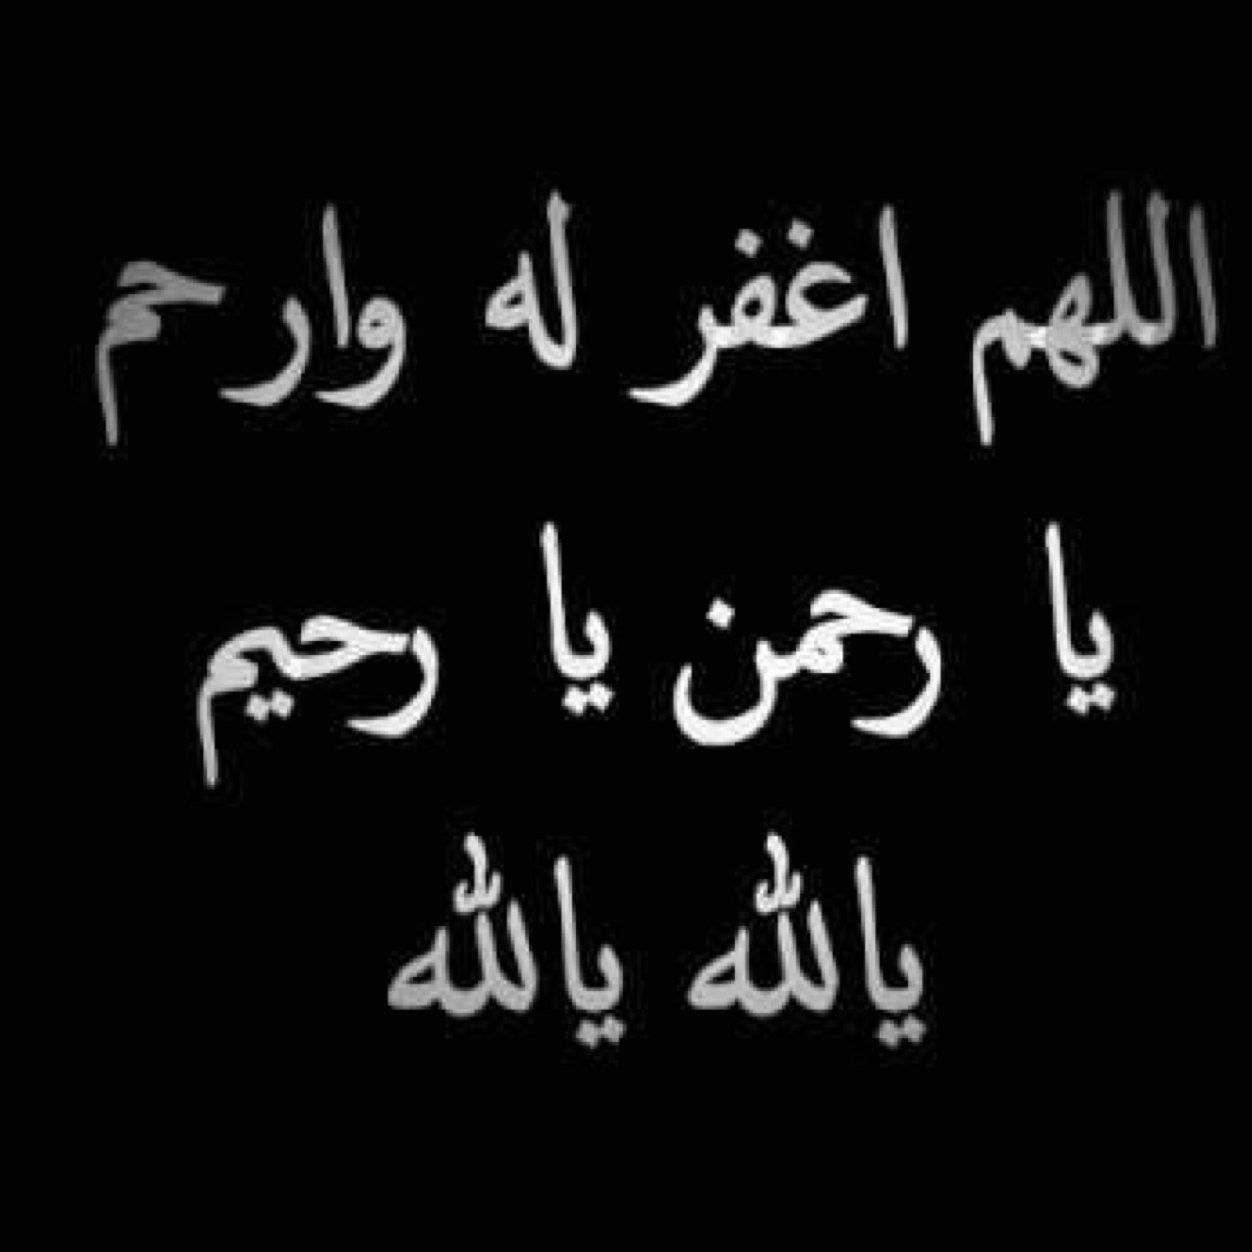 اللهم اغفر له وارحم
يا رحمن يا رحيم
يالله يالله